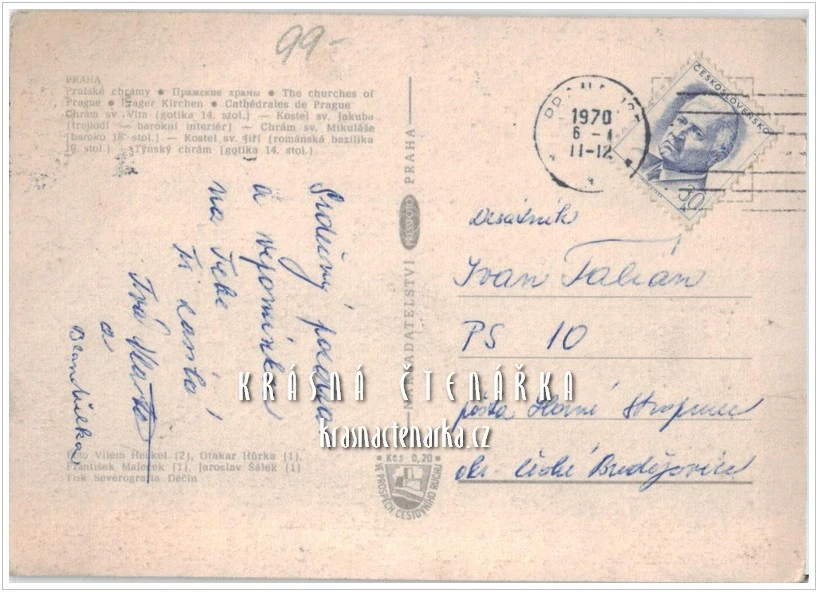 99-
PRAHA
Pražské chrámy • Пражские храмы • The churches of
Prague • Prager Kirchen • Cathédrales de Prague
Chrám sv. Víta (gotika 14. stol.) — Kostel sv. Jakuba
(trojlodí — barokní interiér) — Chrám sv. Mikuláše
(baroko 18. stol.) — Kostel sv. Jiří (románská bazilika
stol.) — Týnský chrám (gotika 14. stol.)
Srdečný pozdrav
a vzpomínku
na Tebe
Ti zasílá
Tvá Vlasta
a
Foto Vilém Heckel (2), Otakar Hůrka (1),
František Maleček (1), Jaroslav Šálek (1)
Tisk Severografia Děčín
NAKLADATELSTVÍ PRESSFOTO PRAHA
Kčs 0,20
VE PROSPĚCH CESTOVNÍHO RUCHU
PRAHA
1970
11-12
ČESKOSLOVENSKO
30
Desátník
Ivan Talián
PS 10
pošta Horní Stropnice
okr. České Budějovice
KRÁSNÁ ČTENÁŘKA
krasnactenarka.cz